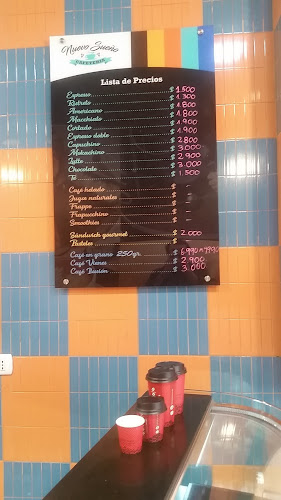 Nuevo Sueño
CAFETERÍA
Lista de Precios
Espresso $ 1.500
Ristreto $ 1.300
Americano $ 1.800
Macchiato $ 1.800
Cortado $ 1.900
Espresso doble $ 1.900
Capuchino $ 2.800
Mokachino $ 3.000
Latte $ 2.900
Chocolate $ 3.000
Té $ 1.500
Café helado $ -
Jugos naturales $ -
Frappe $ -
Frapuchino $ -
Smoothies $ -
Sándwich gourmet $ 2.000
Pasteles $ -
Café en grano 250gr. $
Café Vienes $ 2.900
Café Bonbón $ 3.000